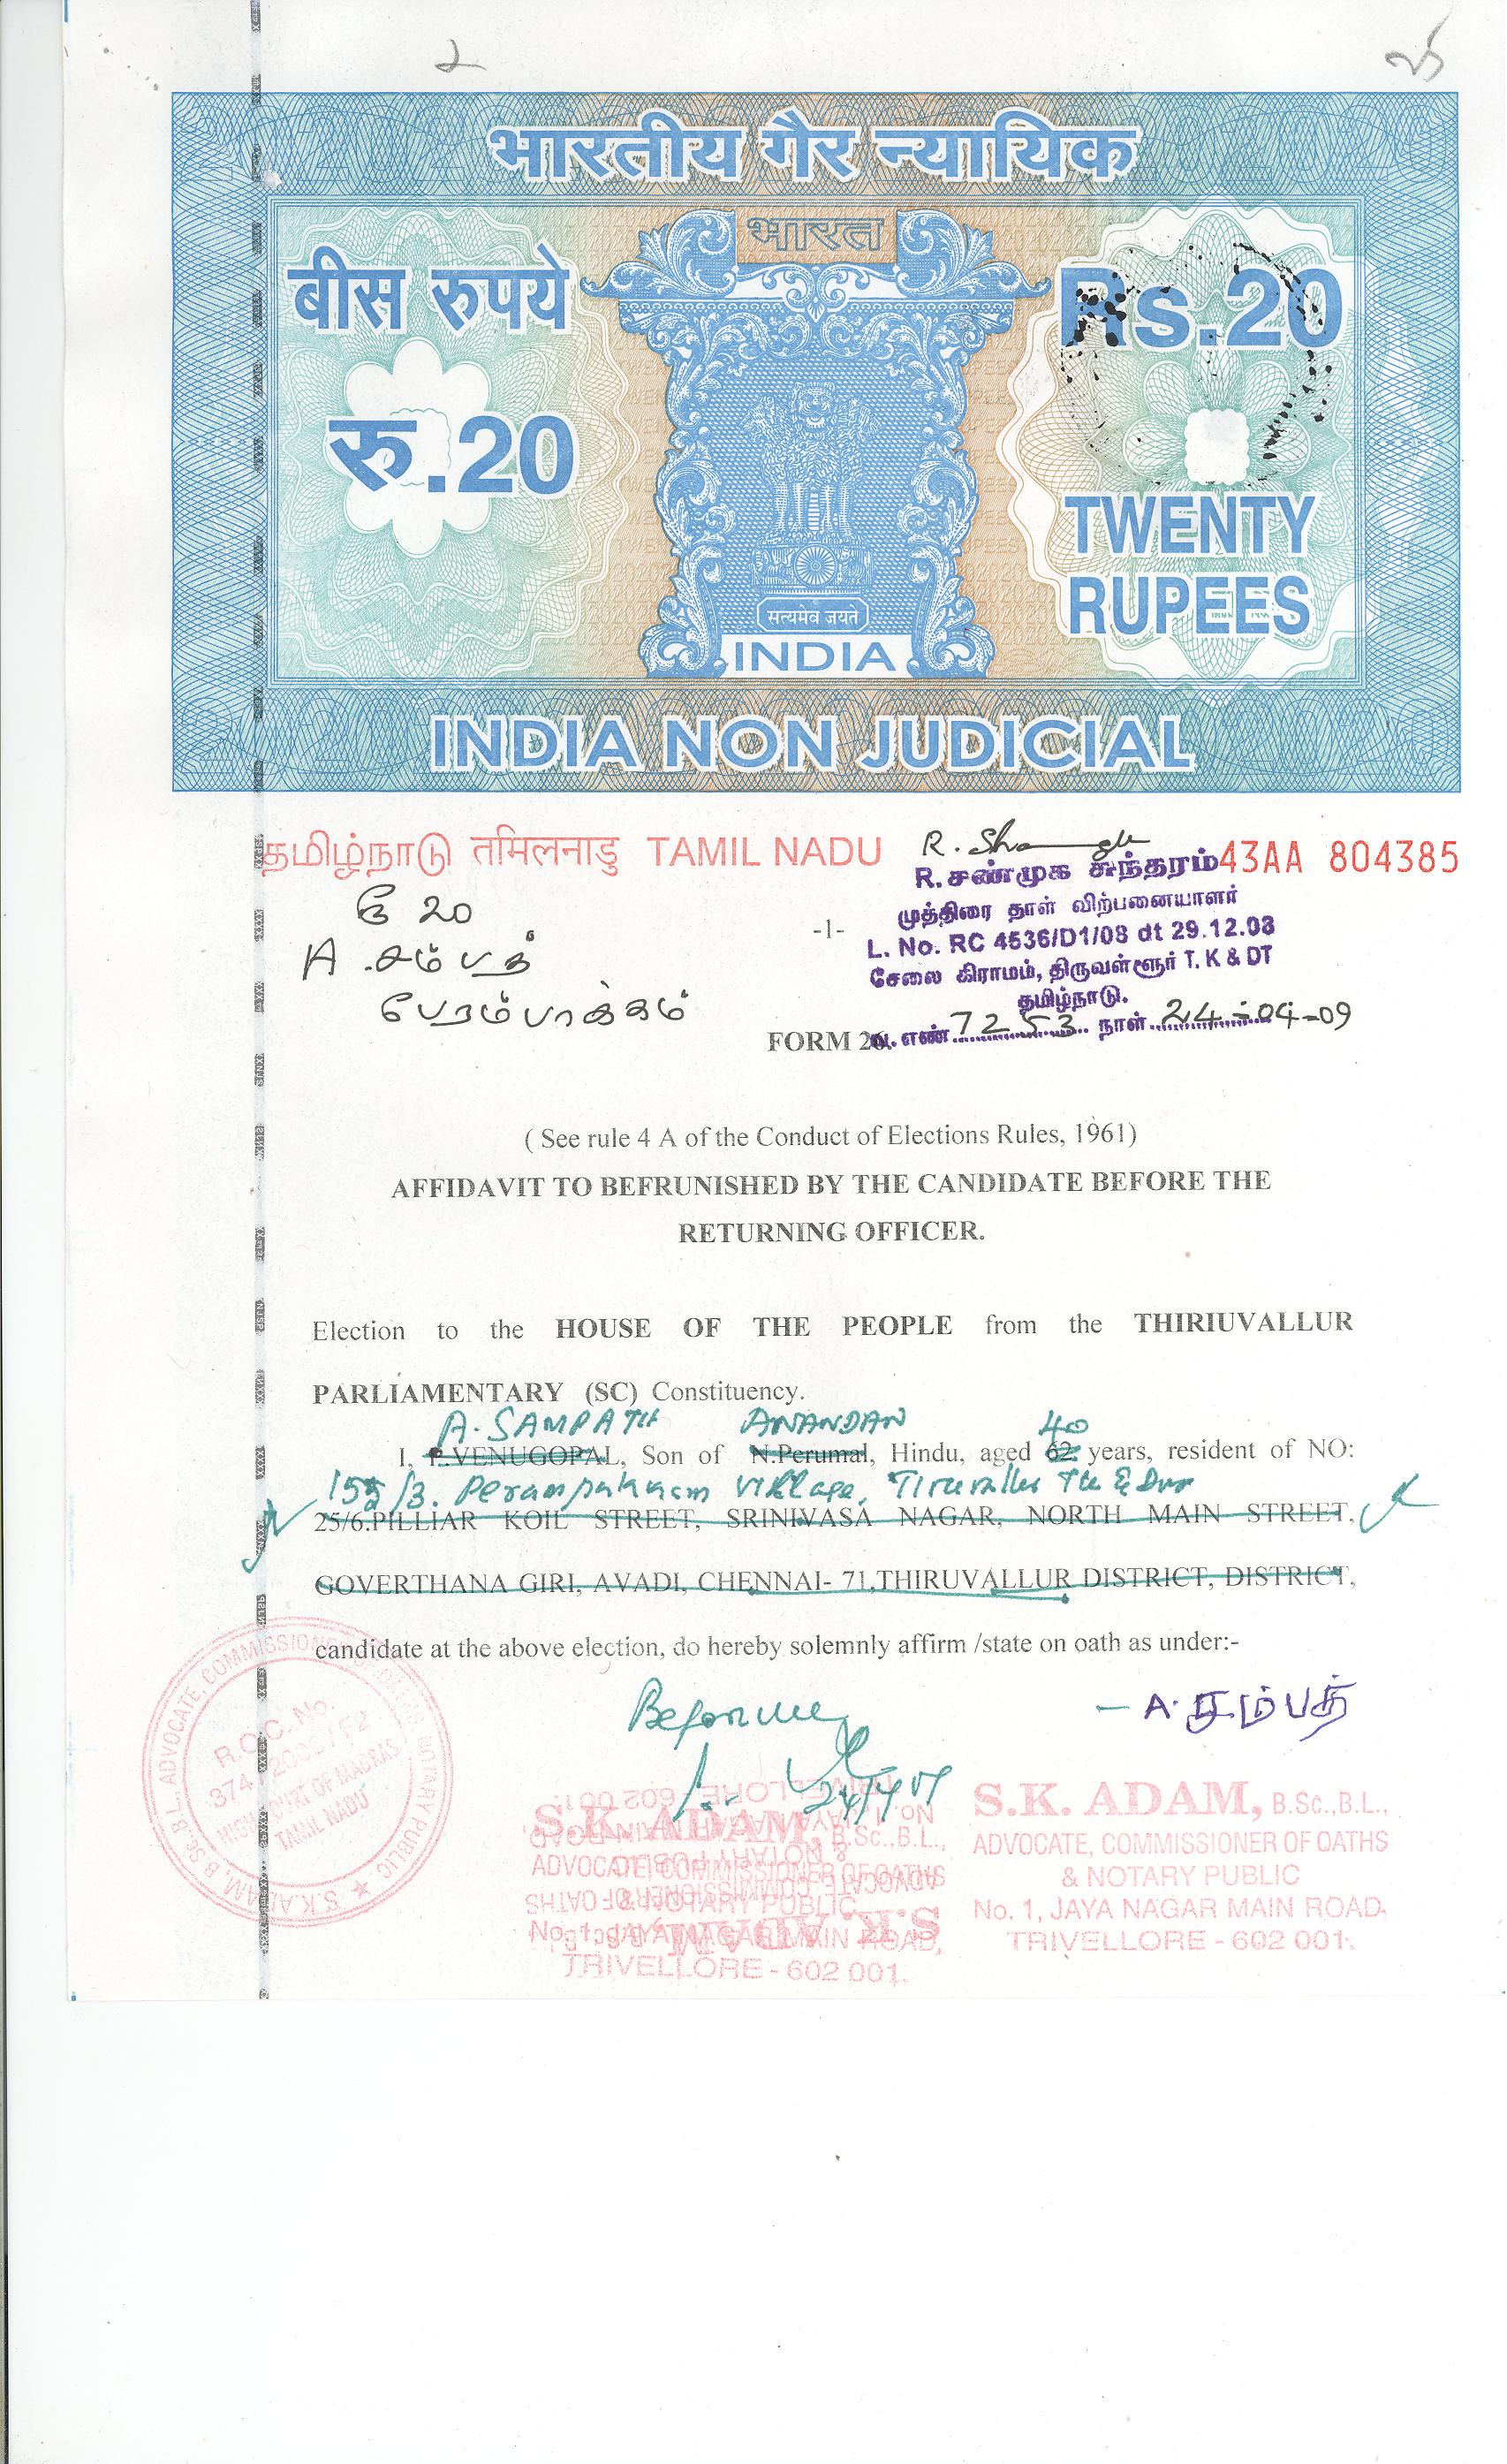 2
भारतीय गैर न्यायिक
भारत
बीस रुपये
Rs.20
रु.20
TWENTY
RUPEES
सत्यमेव जयते
INDIA
INDIA NON JUDICIAL
தமிழ்நாடு तमिलनाडु TAMIL NADU
43AA 804385
R. சண்முக சுந்தரம்
முத்திரை தாள் விற்பனையாளர்
L. No. RC 4536/D1/08 dt 29.12.08
சேலை கிராமம், திருவள்ளூர் T.K & DT
தமிழ்நாடு.
வ. எண் 7253 நாள் 24-04-09
ரூ 20
A .சம்பத்
பேரம்பாக்கம்
-1-
FORM 26.
( See rule 4 A of the Conduct of Elections Rules, 1961)
AFFIDAVIT TO BEFRUNISHED BY THE CANDIDATE BEFORE THE
RETURNING OFFICER.
Election to the HOUSE OF THE PEOPLE from the THIRIUVALLUR
PARLIAMENTARY (SC) Constituency.
A. SAMPATH ANANDAN 40
I, P.VENUGOPAL, Son of N.Perumal, Hindu, aged 62 years, resident of NO:
155/3. Perampakkam Village, Tiruvallur
25/6.PILLIAR KOIL STREET, SRINIVASA NAGAR, NORTH MAIN STREET,
GOVERTHANA GIRI, AVADI, CHENNAI- 71,THIRUVALLUR DISTRICT, DISTRICT,
candidate at the above election, do hereby solemnly affirm /state on oath as under:-
Before me
– A. சம்பத்
24/4/09
S.K. ADAM, B.Sc.,B.L., ADVOCATE, COMMISSIONER OF OATHS & NOTARY PUBLIC
R.O.C. No.
HIGH COURT OF MADRAS
TAMIL NADU
S.K. ADAM, B.Sc.,B.L.,
ADVOCATE, COMMISSIONER OF OATHS
& NOTARY PUBLIC
No. 1, JAYA NAGAR MAIN ROAD,
TRIVELLORE - 602 001.
S.K. ADAM, B.Sc.,B.L.,
ADVOCATE, COMMISSIONER OF OATHS
& NOTARY PUBLIC
No. 1, JAYA NAGAR MAIN ROAD,
TRIVELLORE - 602 001.